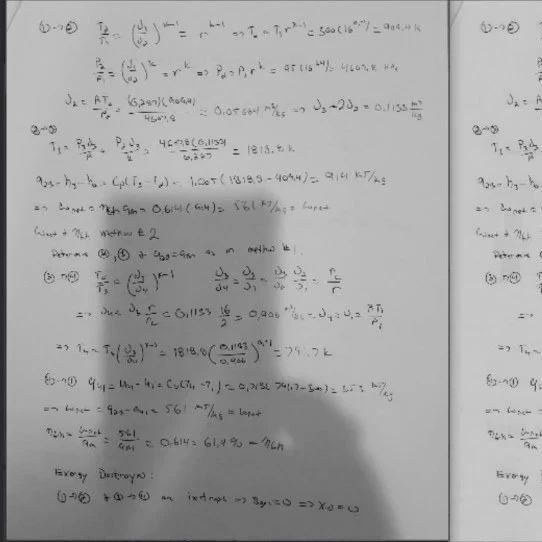 ①→② T₂/T₁ = (υ₁/υ₂)^(k-1) = r^(k-1) => T₂ = T₁r^(k-1) = 300(16^0,4) = 909,4 K
P₂/P₁ = (υ₁/υ₂)^k = r^k => P₂ = P₁r^k = 95(16^1,4) = 4607,8 kPa
υ₂ = RT₂/P₂ = (0,287)(909,4)/4607,8 = 0,05664 m³/kg => υ₃ = 2υ₂ = 0,1133 m³/kg
②→③
T₃ = P₃υ₃/R = P₂υ₃/R = 4607,8(0,1133)/0,287 = 1818,8 K
q₂₃ = h₃ - h₂ = Cp(T₃ - T₂) = 1,005(1818,8 - 909,4) = 914 kJ/kg
=> ωnet = ηth qin = 0,614(914) = 561 kJ/kg = ωnet
ωnet & ηth method # 2
Determine ②, ③ & q₂₃ = qin as in method # 1.
③→④ T₄/T₃ = (υ₃/υ₄)^(k-1) υ₃/υ₄ = υ₃/υ₁ = υ₃/υ₂ υ₂/υ₁ = rc/r
=> υ₄ = υ₃ r/rc = 0,1133 16/2 = 0,906 m³/kg = υ₄ = υ₁ = RT₁/P₁
=> T₄ = T₃(υ₃/υ₄)^(k-1) = 1818,8(0,1133/0,906)^0,4 = 791,7 K
④→① q₄₁ = u₄ - u₁ = Cv(T₄ - T₁) = 0,718(791,7 - 300) = 353 kJ/kg
=> ωnet = q₂₃ - q₄₁ = 561 kJ/kg = ωnet
ηth = ωnet/qin = 561/914 = 0,614 = 61,4 % = ηth
Exergy Destroyed:
①→② & ③→④ are isentropic => Sgen = 0 => Xd = 0